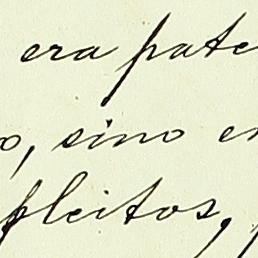 era pate
o, sino en
pleitos,